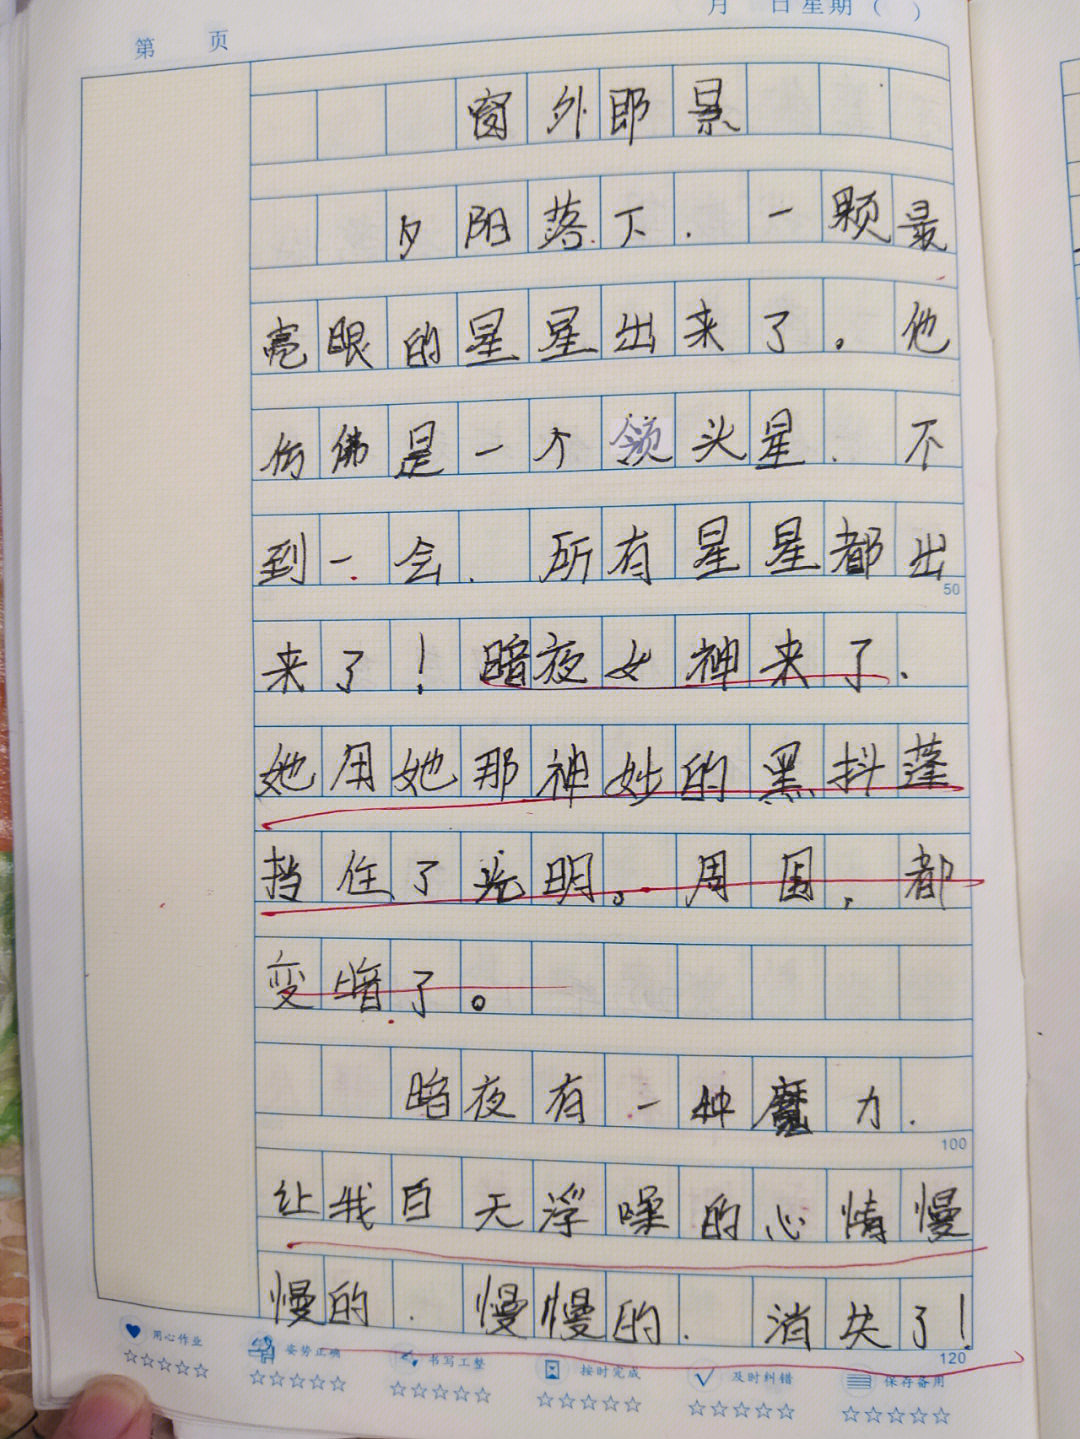 月 日 星期 ( )
第 页
窗外即景
夕阳落下.一颗最
亮眼的星星出来了。他
仿佛是一个领头星.不
到一会.所有星星都出
50
来了!暗夜女神来了.
她用她那神妙的黑抖蓬
挡住了光明。周围,都
变暗了。
暗夜有一种魔力.
100
让我白天浮噪的心情慢
慢的.慢慢的.消失了!
120
用心作业 姿势正确 书写工整 按时完成 及时纠错 保存备用